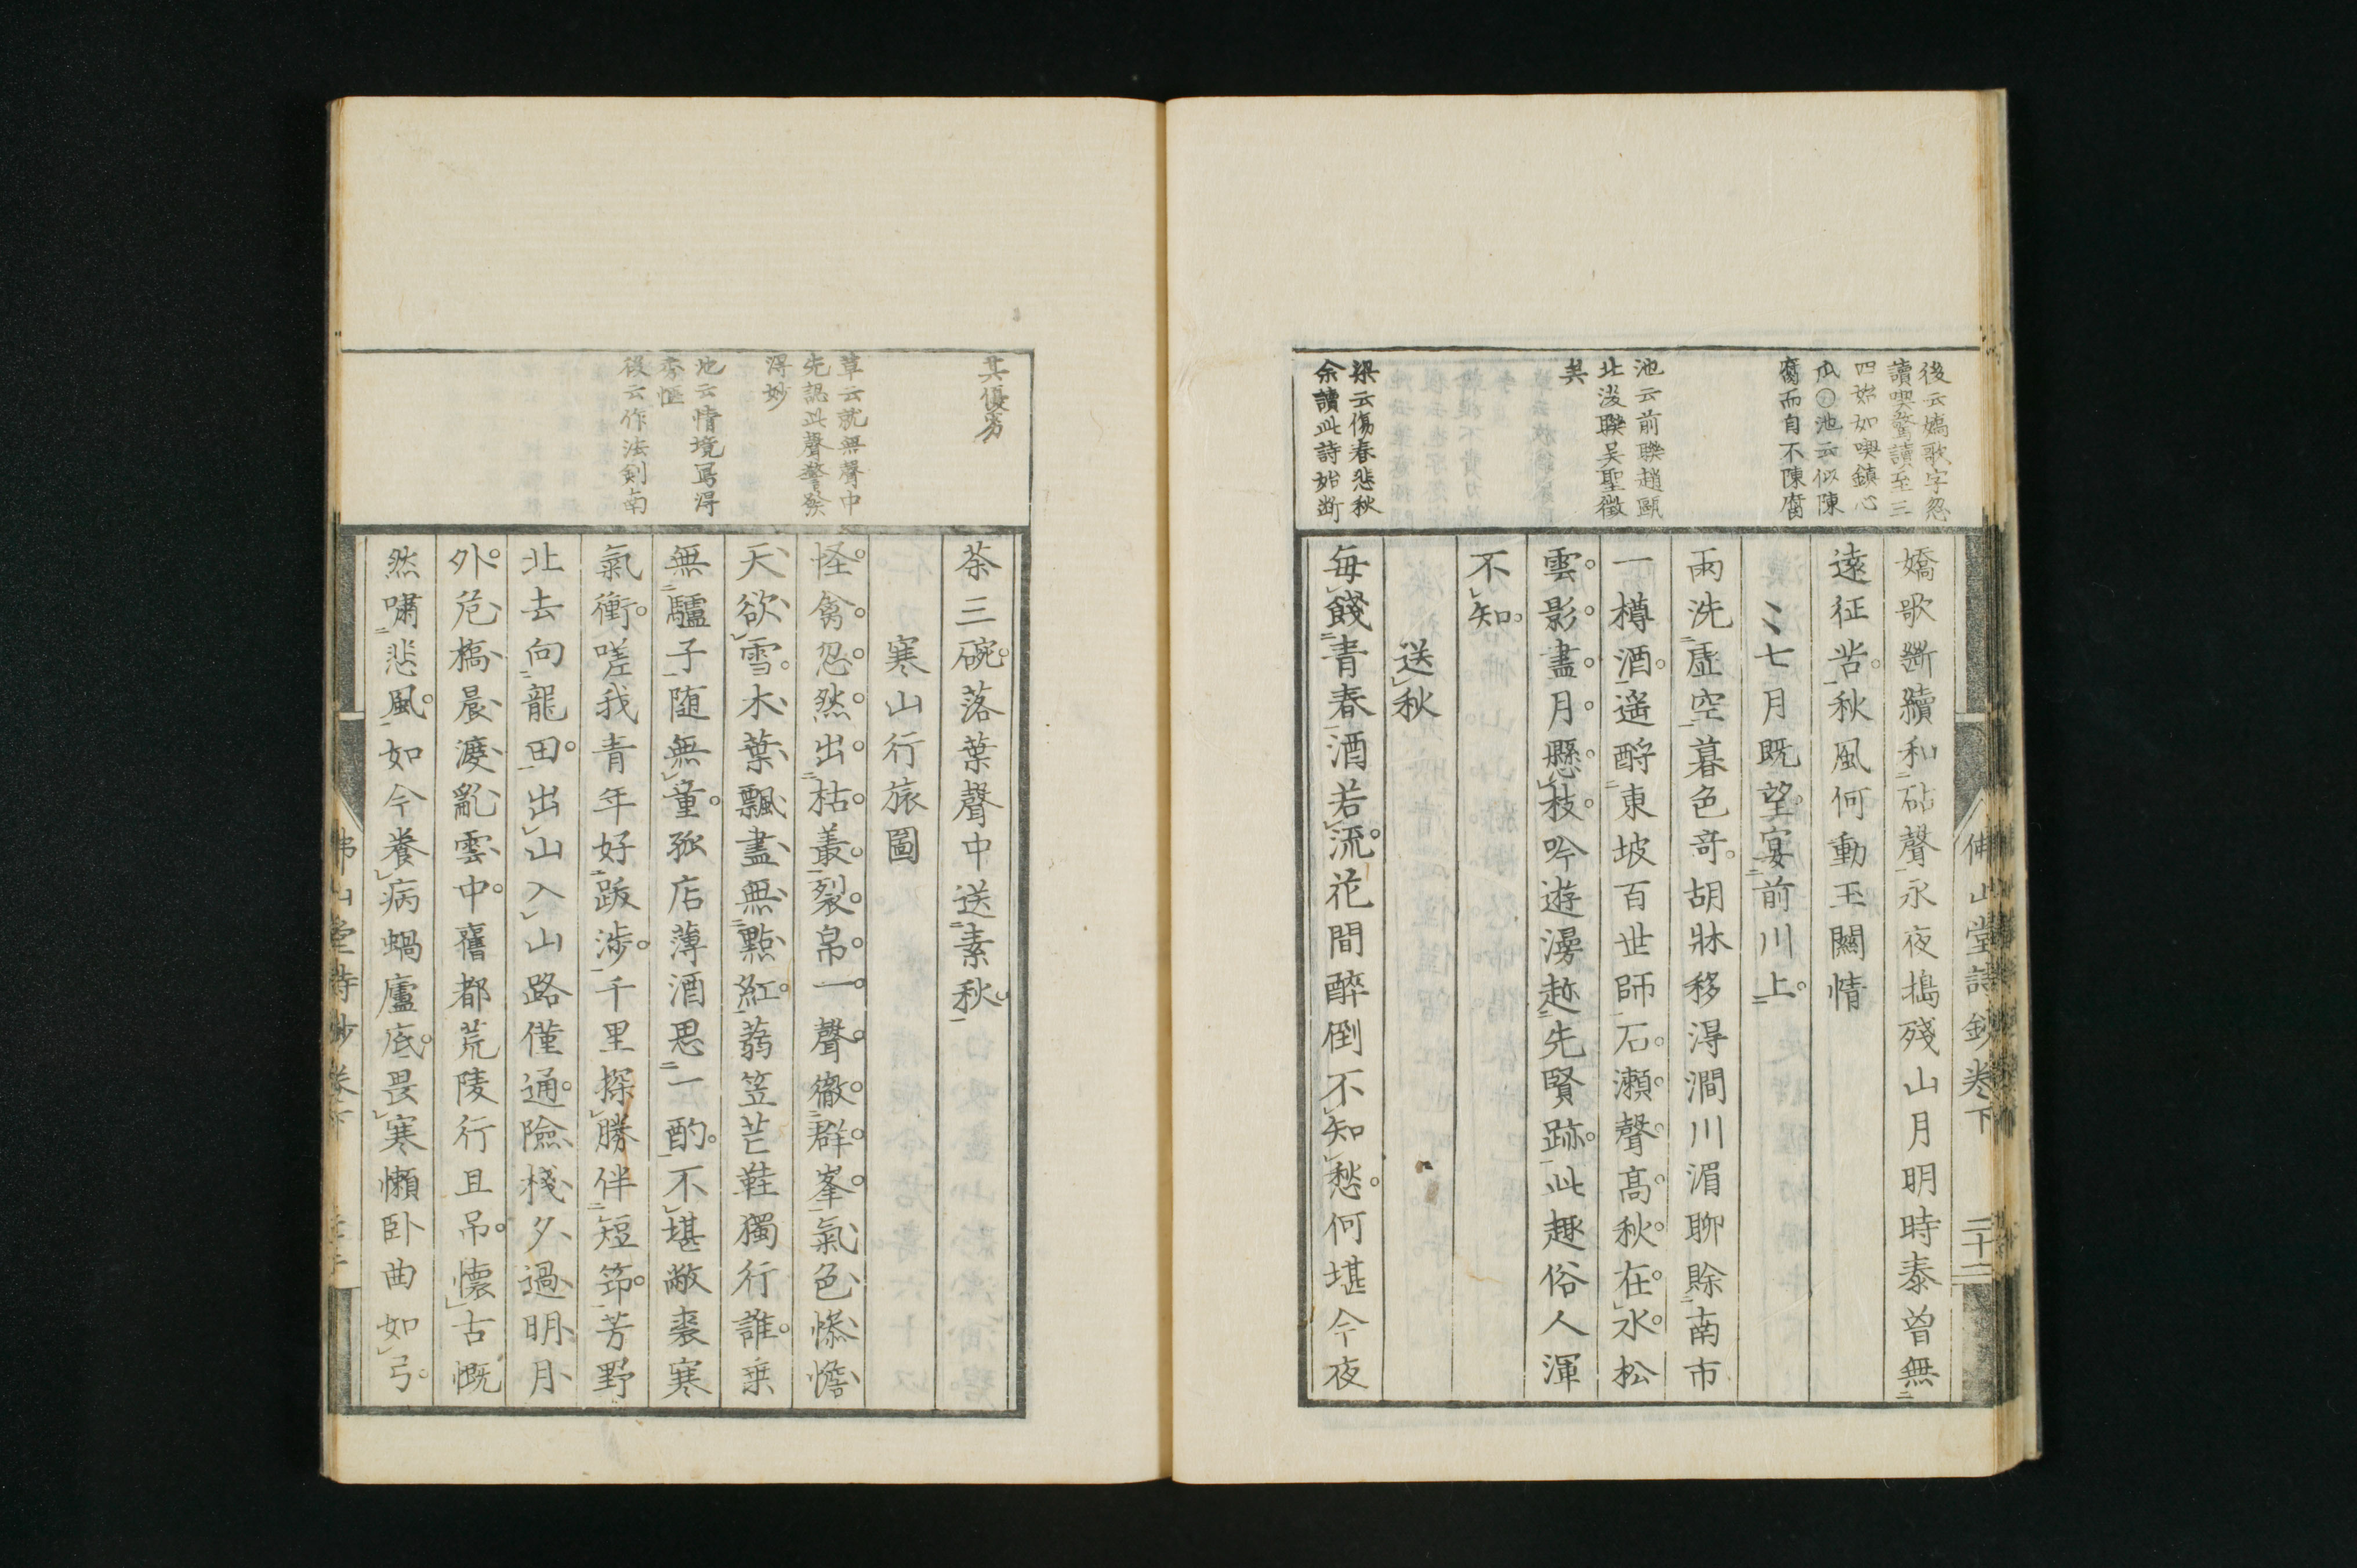 後云嬌歌字忽
讀喫驚讀至三
四始如喫鎮心
瓜〇池云似陳
腐而自不陳腐
池云前聯趙甌
北後聯吴聖徵
矣
梁云傷春悲秋
余讀此詩始断
伂山堂詩鈔卷下
二十二
嬌歌斷續和砧聲永夜搗殘山月明時泰曽無
遠征苦秋風何動玉關情
〻七月既望宴前川上
雨洗虛空暮色竒胡牀移淂澗川湄聊賖南市
一樽酒遥酹東坡百世師石瀬聲髙秋在水松
雲影盡月懸枝吟遊漫趂先賢跡此趣俗人渾
不知
送秋
每餞青春酒若流花間醉倒不知愁何堪今夜
其優劣
草云就無聲中
先認此聲警發
淂妙
池云情境寫淂
後云作法剣南
茶三碗落葉聲中送素秋
寒山行旅圖
怪禽忽然出枯叢裂帛一聲徹群峯氣色慘憺
天欲雪木葉飄盡無點紅蒻笠芒鞋獨行誰乗
無驢子随無童孤店薄酒思一酌不堪敝裘寒
氣衝嗟我青年好跋渉千里探勝伴短筇芳野
北去向龍田出山入山路僅通險棧夕過明月
外危橋晨渡亂雲中舊都荒陵行且吊懐古慨
然嘯悲風如今養病蝸廬底畏寒懶卧曲如弓